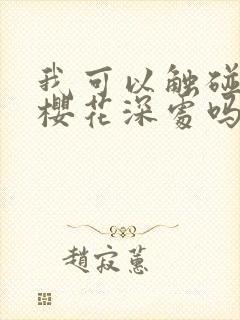 我可以触碰
樱花深处吗
趙寂蕙